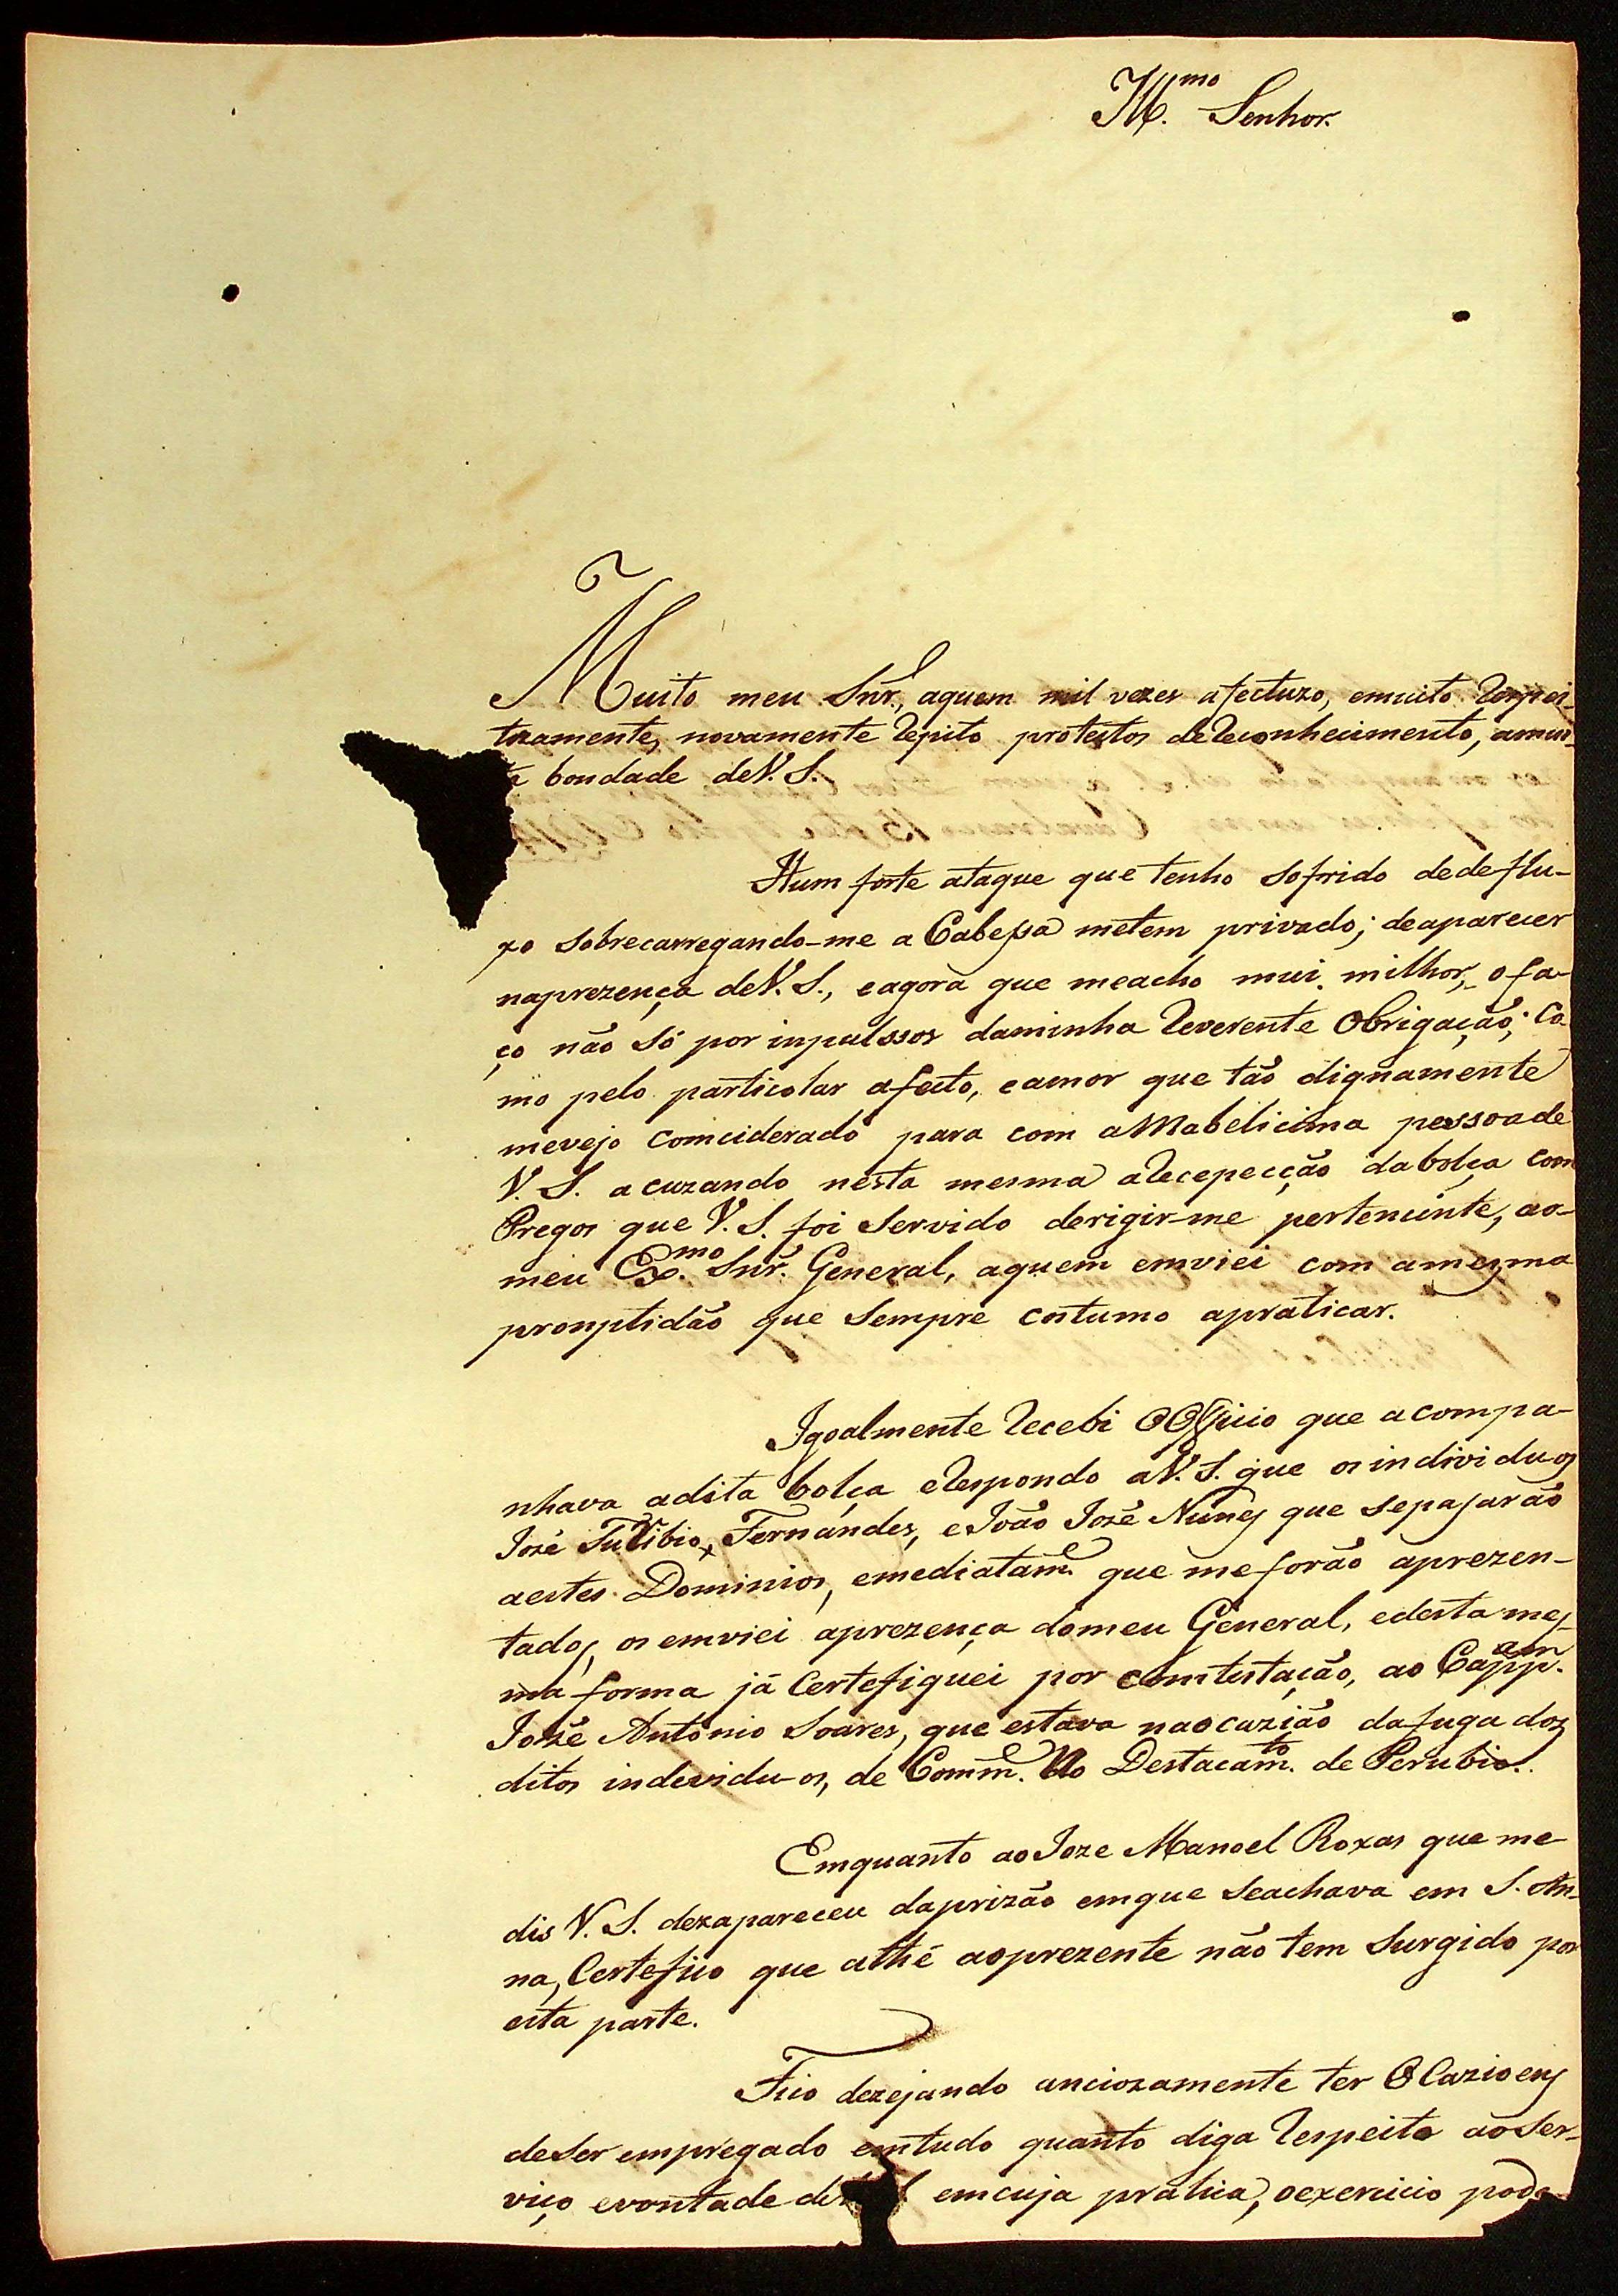 Ill.mo Senhor.
Muito meu Snr., aquem mil vezes afectuzo, emuito Respei-
tozamente, novamente Repito protestos deReconhecimento, amui-
ta bondade deV. S.
Hum forte ataque que tenho sofrido dedeflu-
xo sobrecarregando-me a Cabessa metem privado; deaparecer
naprezença deV. S., eagora que meacho mui milhor, ofa-
ço não só por inpulssos daminha Reverente Obrigação; Co
mo pelo particolar afecto, eamor que tão dignamente
mevejo comciderado para com aMabelicima pessoade
V. S. acuzando nesta mesma aRecepecção dabolça com
Pregos que V. S. foi Servido derigir-me pertencinte, ao-
meu Ex.mo Snr. General, aquem emviei com amesma
promptidão que Sempre costumo apraticar.
Igoalmente Recebi OOfficio que acompa-
nhava adita bolça eRespondo aV. S. que osindividuos
José Turibio Fernandes, eJoão José Nunes que sepasarão
aestes Dominios, emediatam.e que meforão aprezen-
tados, os emviei aprezença domeu General, edesta mes-
ma forma já Certefiquei por comtestação, ao Capp.am
José Antonio Soares, que estava naocazião dafuga dos
ditos individu-os, de Comm.e No Destacam.to de Perubio.
Emquanto aoJoze Manoel Roxas que me
dis V. S. dezapareceu daprizão emque Seachava em S. An-
na, Certefico que athé aoprezente não tem Surgido por
esta parte.
Fico dezejando anciozamente ter OCazioens
deSer empregado emtudo quanto diga Respeito aoSer-
viço evontade de emcuja pratica, oexercicio pode